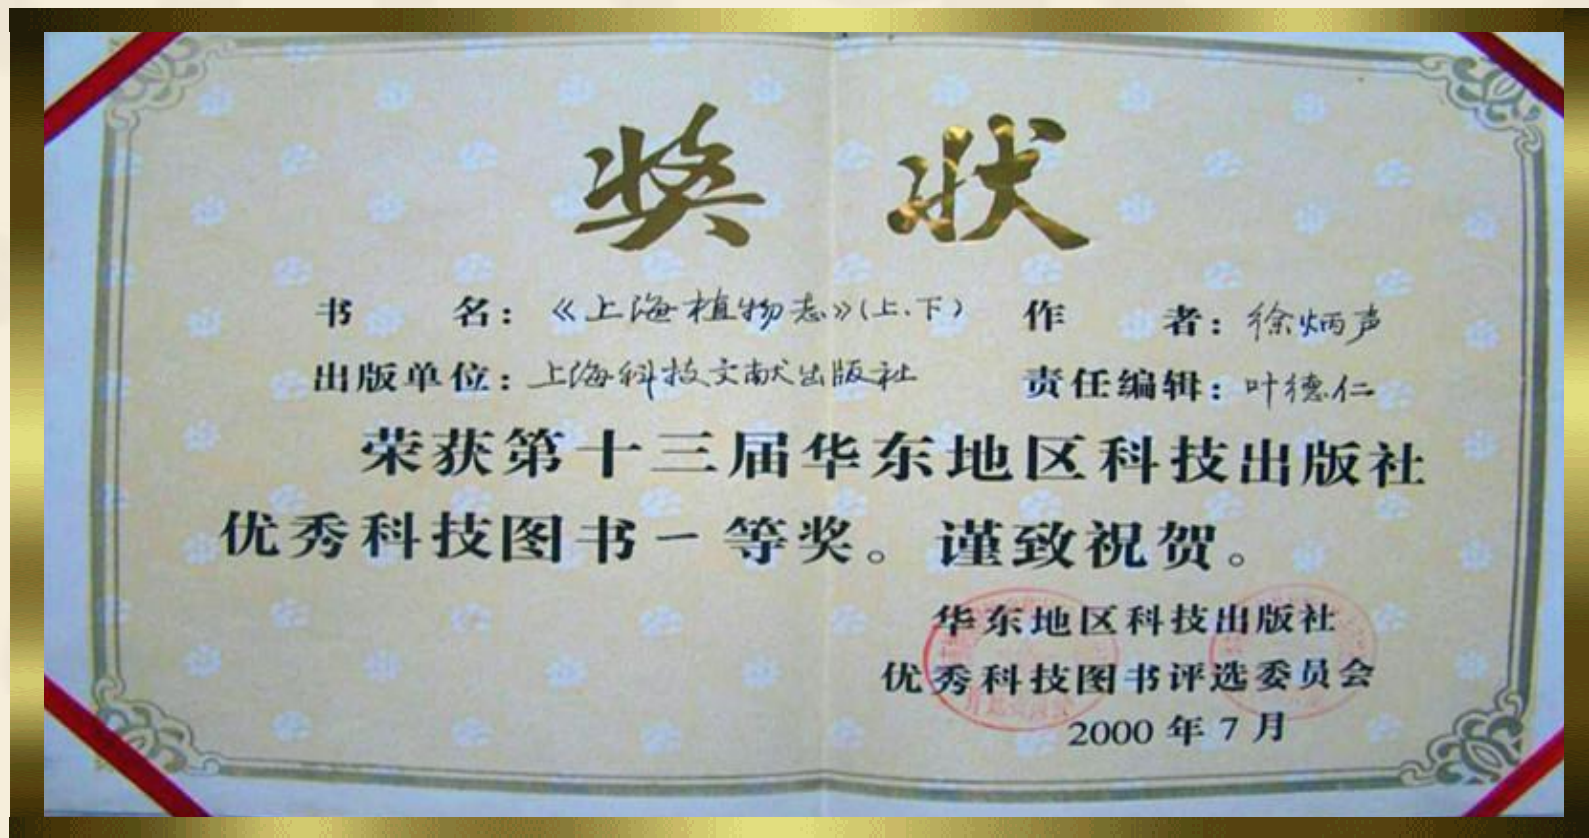 奖 状
书 名：《上海植物志》(上、下) 作 者：徐炳声
出版单位：上海科技文献出版社 责任编辑：叶德仁
荣获第十三届华东地区科技出版社
优秀科技图书一等奖。谨致祝贺。
华东地区科技出版社
优秀科技图书评选委员会
2000年7月